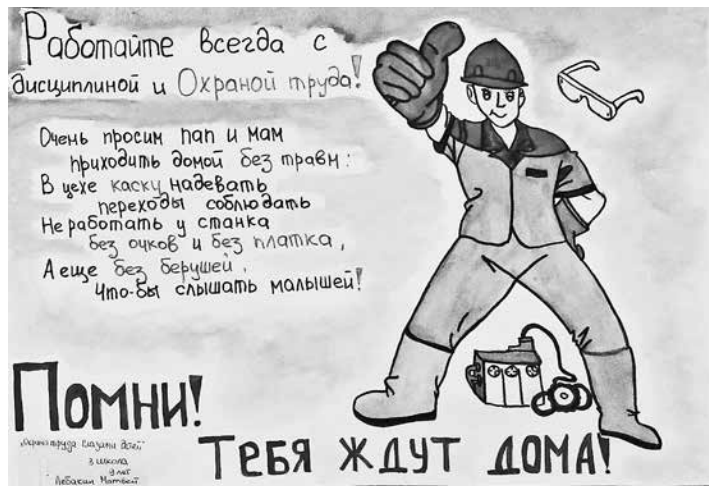 Работайте всегда с
дисциплиной и Охраной труда!
Очень просим пап и мам
приходить домой без травм:
В цехе каску надевать
переходы соблюдать
Не работать у станка
без очков и без платка,
А еще без берушей,
Что-бы слышать малышей!
Помни!
Тебя ждут дома!
"Охрана труда глазами детей"
3 школа
9 лет
Лебакин Матвей